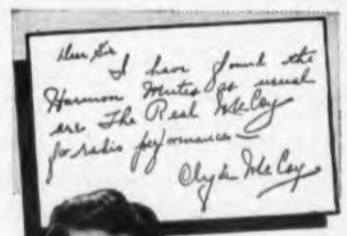 Dear Sir
I have found the
Harmon Mutes as usual
are The Real McCoy
for radio performances—
Clyde McCoy